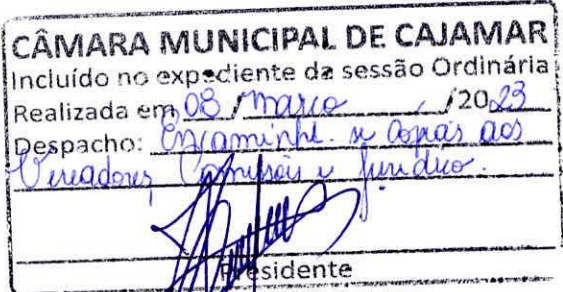 CÂMARA MUNICIPAL DE CAJAMAR
Incluído no expediente da sessão Ordinária
Realizada em 08 / março / 2023
Despacho: Encaminhe-se cópias aos
Vereadores, Comissões e jurídico.
Presidente